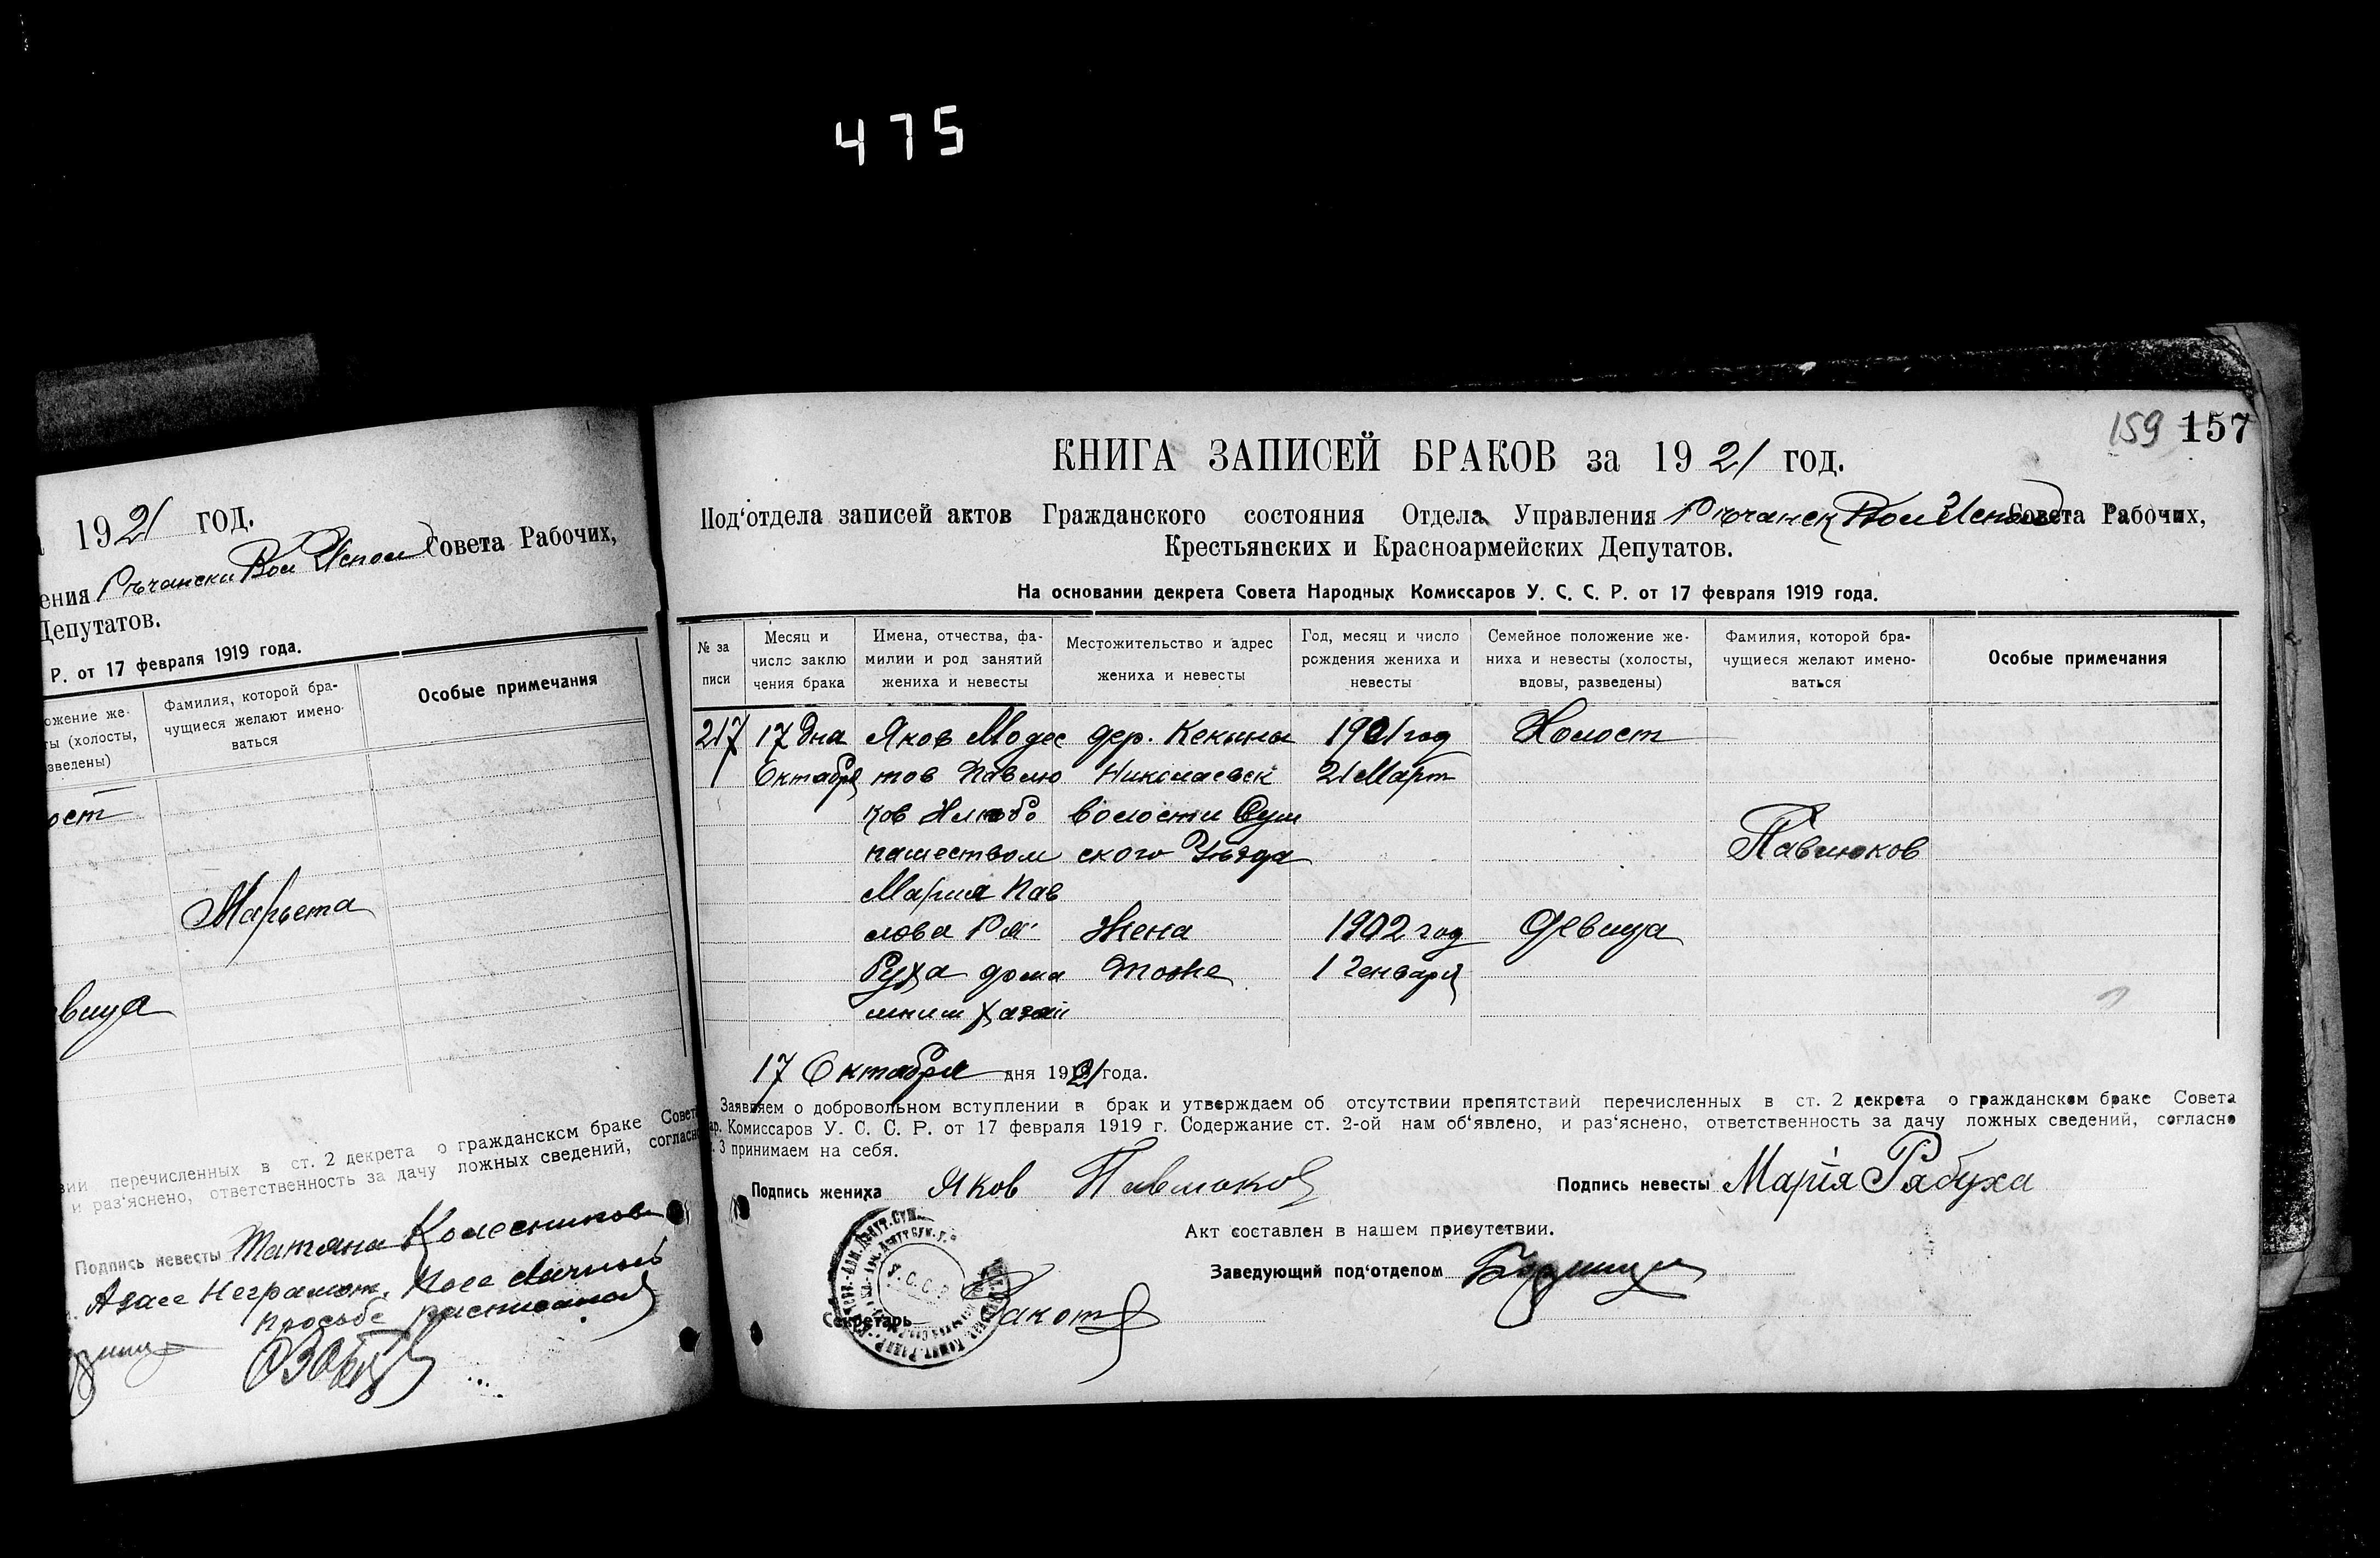 475
1921 год.
ения Ръчански Вол Испол Совета Рабочих,
Депутатов.
Р. от 17 февраля 1919 года.
ожение же-
ты (холосты,
зведены)
Фамилия, которой бра-
чущиеся желают имено-
ваться
Особые примечания
ост
Марьета
вица
вии перечисленных в ст. 2 декрета о гражданском браке Совета
и раз'яснено, ответственность за дачу ложных сведений, согласно
Подпись невесты Татяна Колесникова
Неграмот.
просьбе расписался
159 157
КНИГА ЗАПИСЕЙ БРАКОВ за 1921 год.
Под'отдела записей актов Гражданского состояния Отдела Управления Ръчанск Вол Испол Совета Рабочих,
Крестьянских и Красноармейских Депутатов.
На основании декрета Совета Народных Комиссаров У. С. С. Р. от 17 февраля 1919 года.
№ за
писи
Месяц и
число заклю
чения брака
Имена, отчества, фа-
милии и род занятий
жениха и невесты
Местожительство и адрес
жениха и невесты
Год, месяц и число
рождения жениха и
невесты
Семейное положение же-
ниха и невесты (холосты,
вдовы, разведены)
Фамилия, которой бра-
чущиеся желают имено-
ваться
Особые примечания
217 17 дна Яков Модес дер. Кекины 1901 год Холост
Октабря тов Павлю Николаевск 21 Март
ков Хлебо волости Сум
пашеством ского Уъзда Павлюков
Мария Пав
лова Ря Жена 1902 год Девица
Буха дома Тоже 1 Генваря
шним хазаи
17 Октабря дня 1921 года.
Заявляем о добровольном вступлении в брак и утверждаем об отсутствии препятствий перечисленных в ст. 2 декрета о гражданском браке Совета
ар. Комиссаров У. С. С. Р. от 17 февраля 1919 г. Содержание ст. 2-ой нам об'явлено, и раз'яснено, ответственность за дачу ложных сведений, согласно
. 3 принимаем на себя.
Подпись жениха Яков Павлюков
Подпись невесты Марія Рябуха
Акт составлен в нашем присутствии.
Заведующий под'отделом
Секретарь